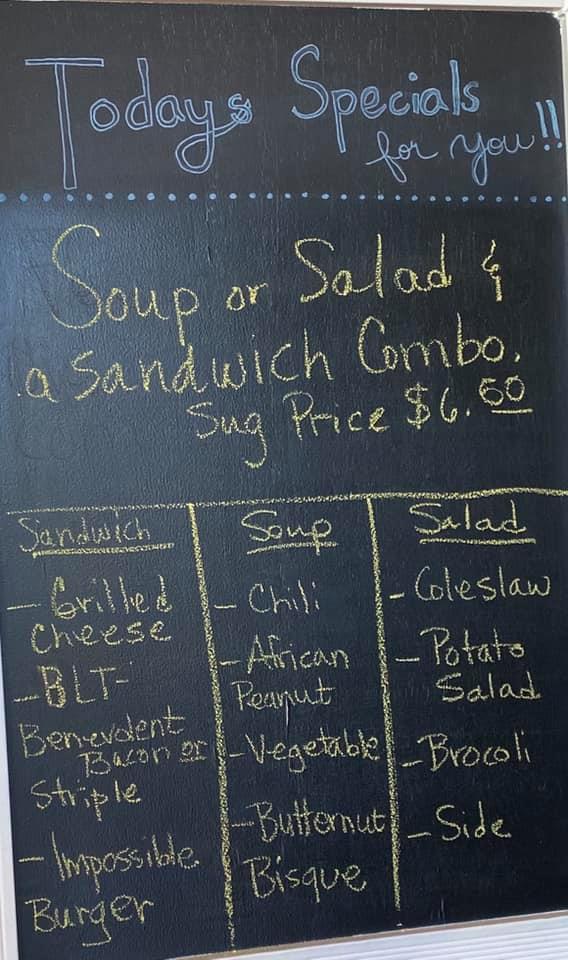 Todays Specials
for you!!
Soup or Salad &
a Sandwich Combo.
Sug Price $6.50
Sandwich
- Grilled
Cheese
- BLT-
Benevolent
Bacon or
Striple
- Impossible
Burger
Soup
- Chili
- African
Peanut
- Vegetable
- Butternut
Bisque
Salad
- Coleslaw
- Potato
Salad
- Brocoli
- Side